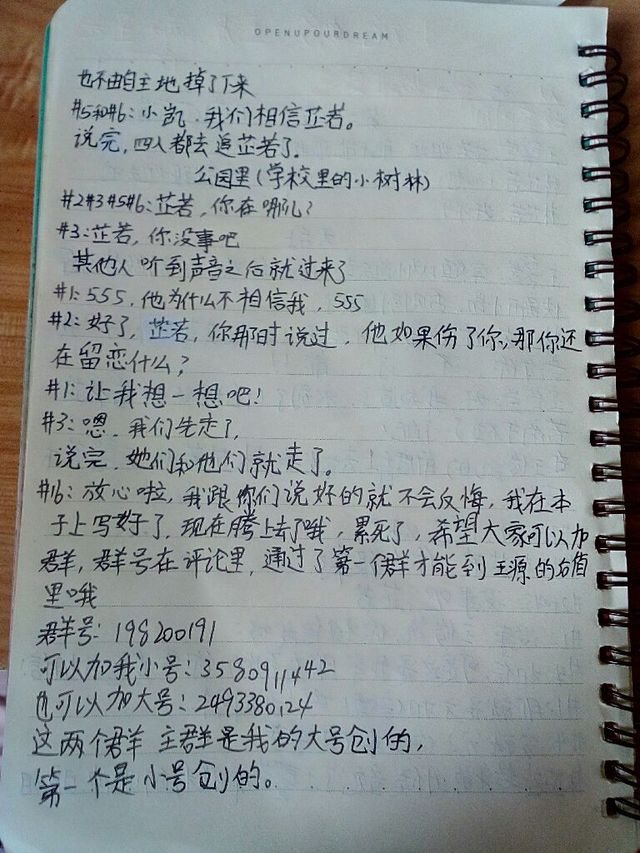 OPENUPOURDREAM
也不由自主地掉了下来
#5和#6：小凯，我们相信芷若。
说完，四人都去追芷若了。
公园里(学校里的小树林)
#2#3#5#6：芷若，你在哪儿？
#3：芷若，你没事吧
其他人听到声音之后就过来了
#1：555，他为什么不相信我，555
#2：好了，芷若，你那时说过，他如果伤了你，那你还
在留恋什么？
#1：让我想一想吧！
#3：嗯，我们先走了，
说完，她们和他们就走了。
#16：放心啦，我跟你们说好的就不会反悔，我在本
子上写好了，现在腾上去了哦，累死了，希望大家可以加
群，群号在评论里，通过了第一个群才能到王源的右值
里哦
群号：198200191
可以加我小号：3580911442
也可以加大号：2493380124
这两个群 主群是我的大号创的，
第一个是小号创的。